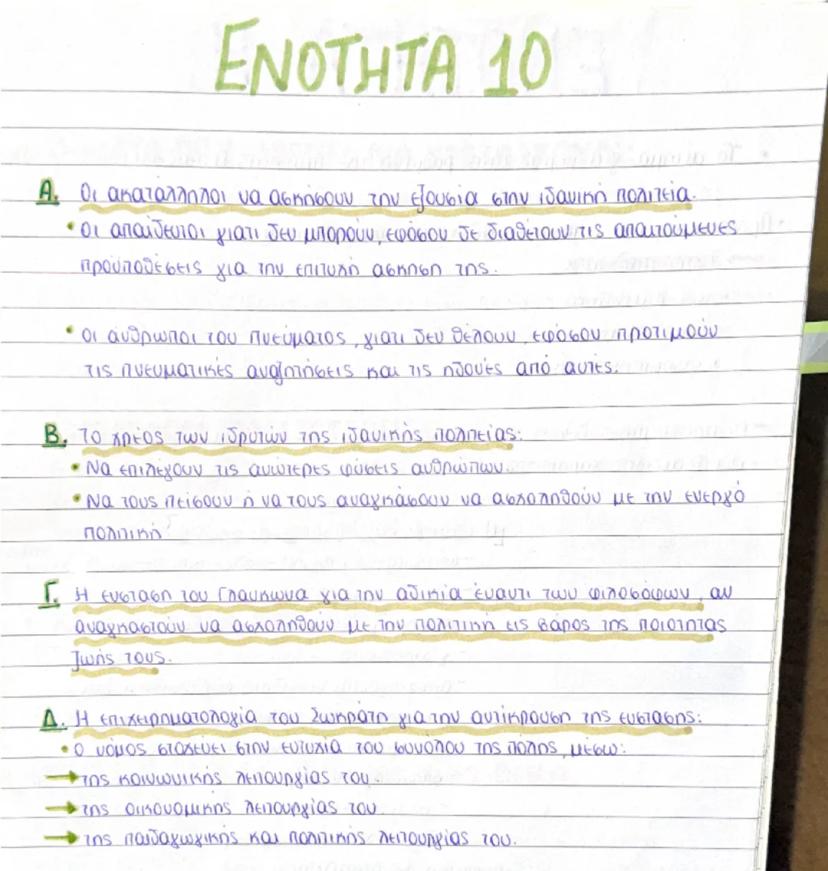 ΕΝΟΤΗΤΑ 10
Α. Οι ακατάλληλοι να ασκήσουν την εξουσία στην ιδανική πολιτεία.
• Οι απαίδευτοι γιατί δεν μπορούν, εφόσον δε διαθέτουν τις απαιτούμενες
προϋποθέσεις για την επιτυχή άσκηση της.
• Οι άνθρωποι του πνεύματος, γιατί δεν θέλουν, εφόσον προτιμούν
τις πνευματικές αναζητήσεις και τις ηδονές από αυτές.
Β. Το χρέος των ιδρυτών της ιδανικής πολιτείας:
• Να επιλέγουν τις ανώτερες φύσεις ανθρώπων.
• Να τους πείσουν ή να τους αναγκάσουν να ασχοληθούν με την ενεργό
πολιτική.
Γ. Η ένσταση του Γλαύκωνα για την αδικία έναντι των φιλοσόφων, αν
αναγκαστούν να ασχοληθούν με την πολιτική εις βάρος της ποιότητας
ζωής τους.
Δ. Η επιχειρηματολογία του Σωκράτη για την αντίκρουση της ένστασης:
• Ο νόμος στοχεύει στην ευτυχία του συνόλου της πόλης, μέσω:
→ της κοινωνικής λειτουργίας του
→ της οικονομικής λειτουργίας του
→ της παιδαγωγικής και πολιτικής λειτουργίας του.